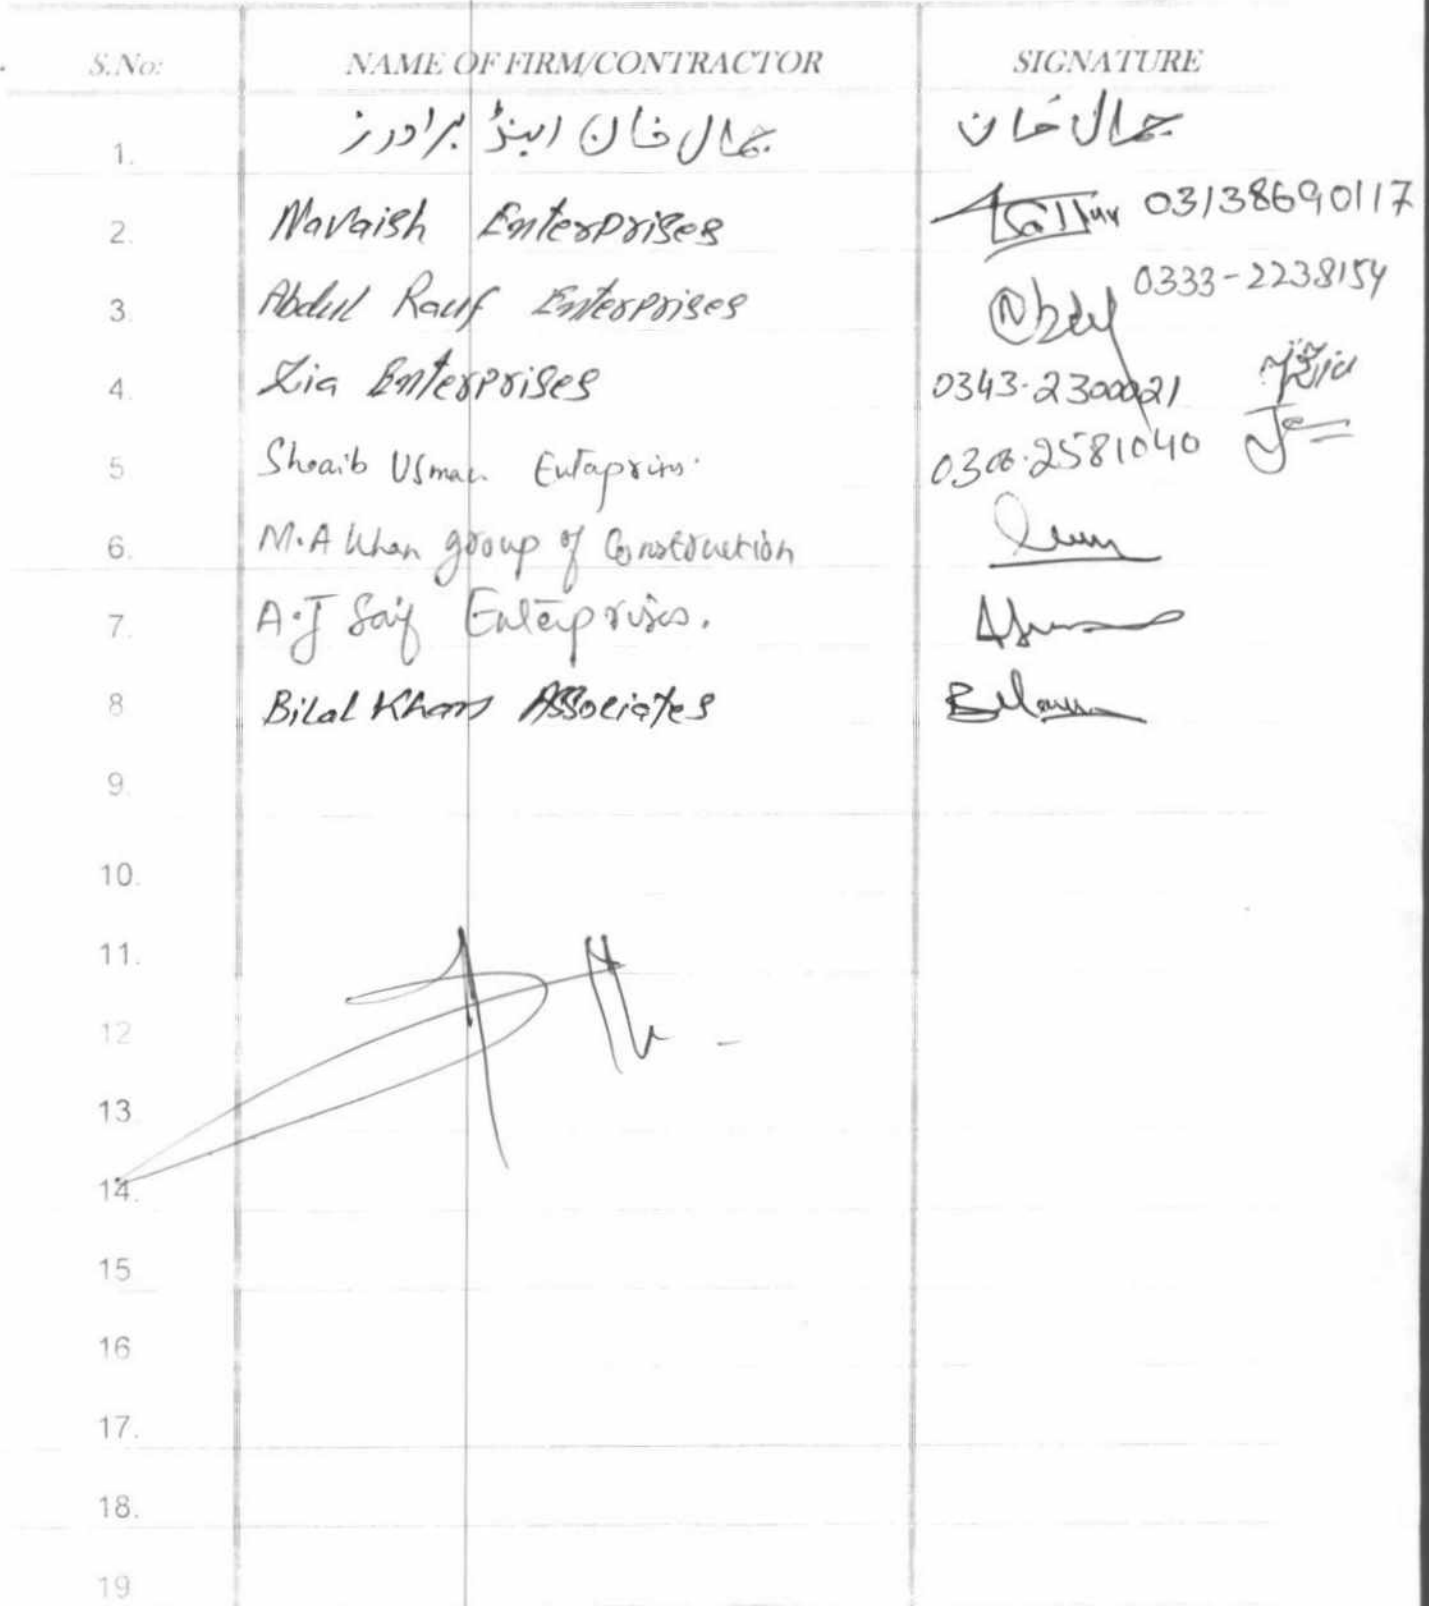 S.No: NAME OF FIRM/CONTRACTOR SIGNATURE
1. جمال خان اینڈ برادرز جمال خان
2. Navaish Enterprises 03138690117
3. Abdul Rauf Enterprises Abdul 0333-2238154
4. Zia Enterprises 0343-2300021
5 Shoaib Usman Entaprins. 2581040
6. M.A Khan group of Construction
7. A.J Saif Enterprises.
8 Bilal Khan Associates
9.
10.
11.
12
13
14.
15
16
17.
18.
19